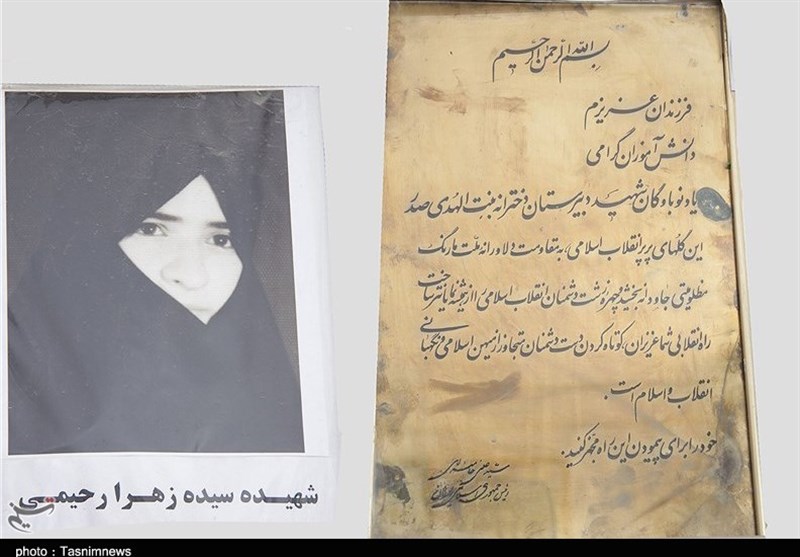 بسم الله الرحمن الرحیم
فرزندان عزیزم
دانش آموزان گرامی
یاد نوباوگان شهید دبیرستان دخترانه بنت الهدی صدر
این گلهای پرپر انقلاب اسلامی، به مقاومت دلاورانه ملت ما رنگ
مظلومیتی جاودانه بخشید و چهره زشت دشمنان انقلاب اسلامی را از همیشه نمایانتر ساخت
راه انقلابی شما عزیزان، کوتاه کردن دست دشمنان متجاوز از میهن اسلامی و نگهبانی
انقلاب و اسلام است.
خود را برای پیمودن این راه مجهز کنید.
سید علی خامنه‌ای
رئیس جمهوری اسلامی ایران
شهیده سیده زهرا رحیمی
تسنیم
photo : Tasnimnews